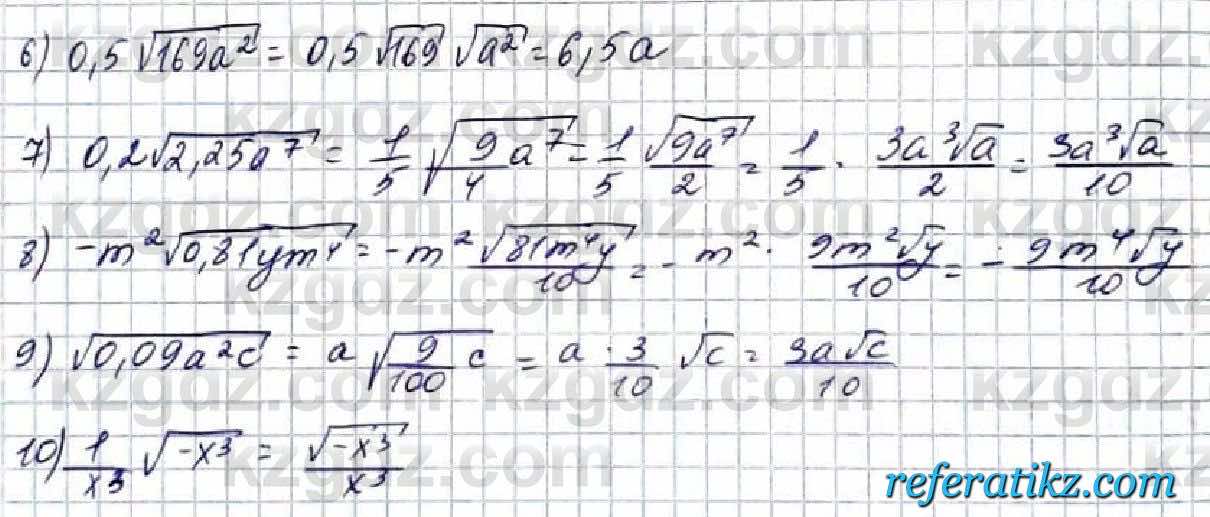 6) 0,5√169a² = 0,5 √169 √a² = 6,5a
7) 0,2√2,25a⁷ = 1/5 √(9/4 a⁷) = 1/5 √9a⁷/2 = 1/5 · 3a³√a/2 = 3a³√a/10
8) -m²√0,81ym⁴ = -m² √81m⁴y/10 = - m² · 9m²√y/10 = - 9m⁴√y/10
9) √0,09a²c = a √(9/100 c) = a · 3/10 √c = 3a√c/10
10) 1/x³ √-x³ = √-x³/x³
referatikz.com
kzgdz.com